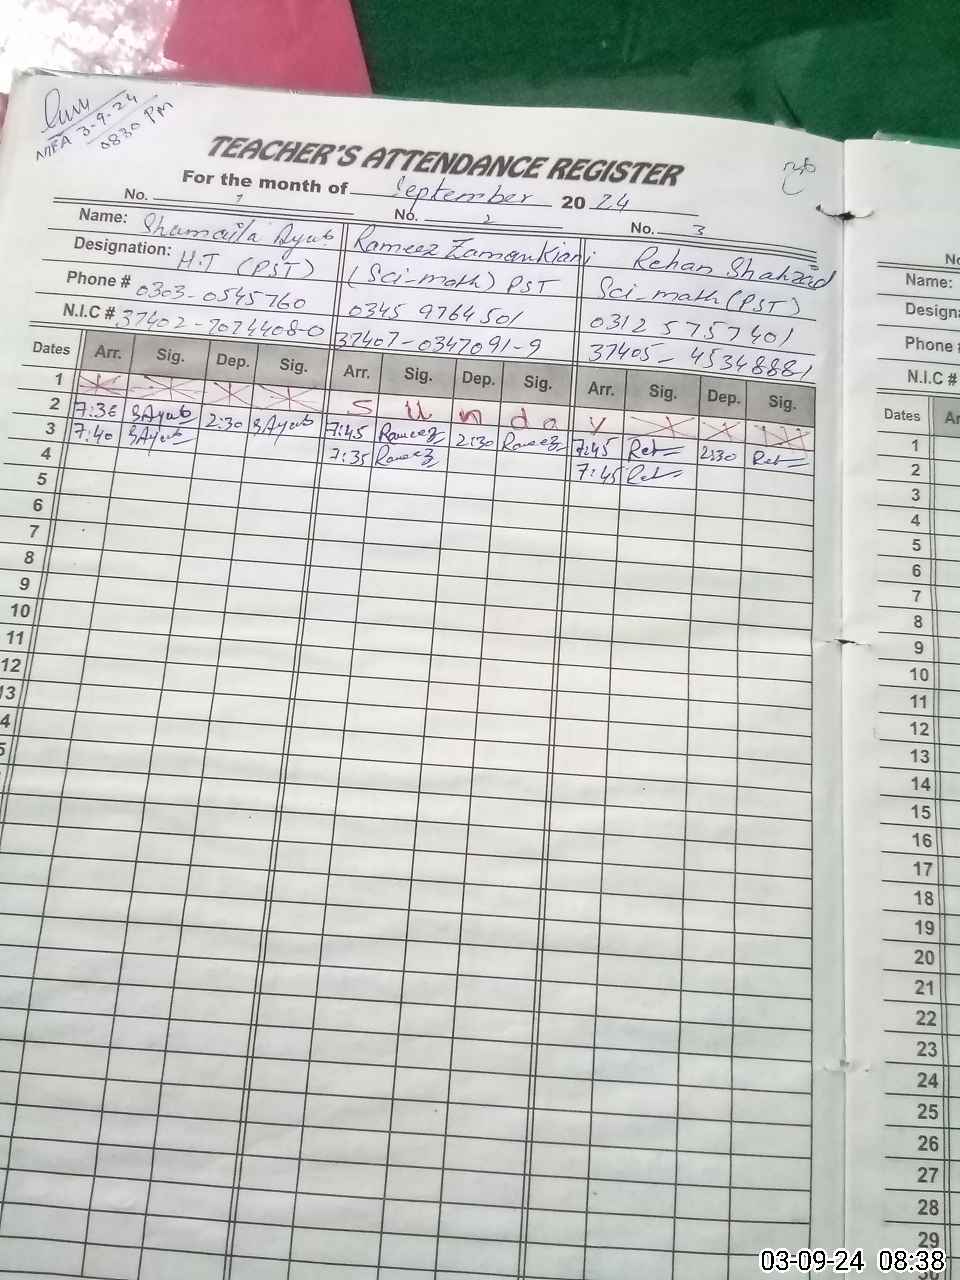 3-9-24
0830 PM
TEACHER'S ATTENDANCE REGISTER
For the month of September 20 24
No. 1 No. 2 No. 3
Name: Shamaila Ayub Rameez Zaman Kiani Rehan Shahzad
Designation: H.T (PST) (Sci-math) PST Sci-math (PST)
Phone # 0303-0545760 0345 9764501 0312 5757401
N.I.C # 37402-7074408-0 37407-0347091-9 37405-45348881
Dates Arr. Sig. Dep. Sig. Arr. Sig. Dep. Sig. Arr. Sig. Dep. Sig.
1 S u n d a y
2 7:36 SAyub 2:30 SAyub 7:45 Rameez 2:30 Rameez 7:45 Reh 2:30 Reh
3 7:40 SAyub 7:35 Rameez 7:45 Reh
4
5
6
7
8
9
10
11
12
13
4
5
No
Name:
Designa
Phone #
N.I.C #
Dates Ar
1
2
3
4
5
6
7
8
9
10
11
12
13
14
15
16
17
18
19
20
21
22
23
24
25
26
27
28
29
03-09-24 08:38